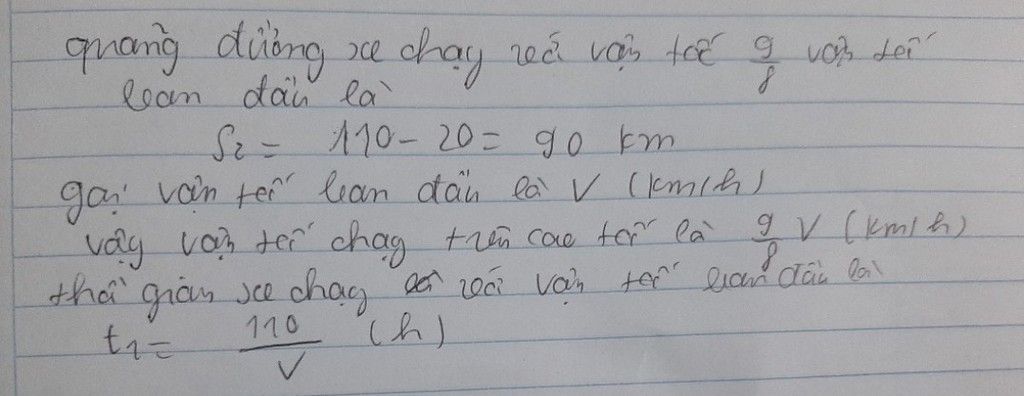 quãng đường xe chạy với vận tốc 9/8 vận tốc
ban đầu là
S₂ = 110 - 20 = 90 km
gọi vận tốc ban đầu là V (km/h)
vậy vận tốc chạy trên cao tốc là 9/8 V (km/h)
thời gian xe chạy với vận tốc ban đầu là
t₁ = 110/V (h)